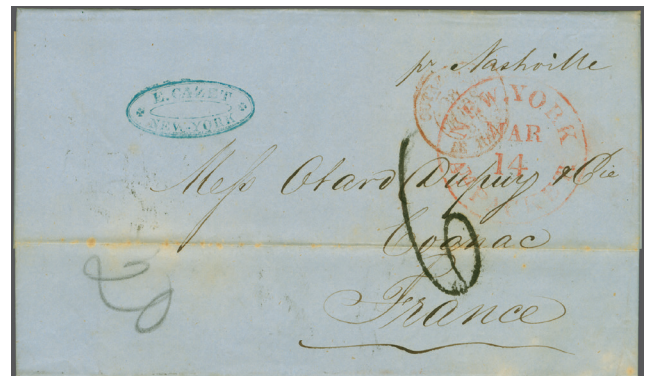 pr Nashville
E. CAZET
NEW-YORK
NEW YORK
MAR
14
Mess Otard Dupuy & Cie
Cognac
France
6
20